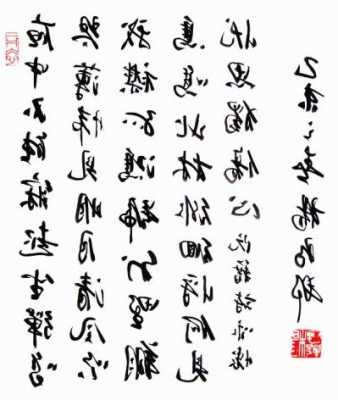 夜中不能寐起坐彈鳴
琴薄帷鑒明月清風吹
我襟孤鴻號外野翔
鳥鳴北林徘徊將何見
憂思獨傷心 阮籍